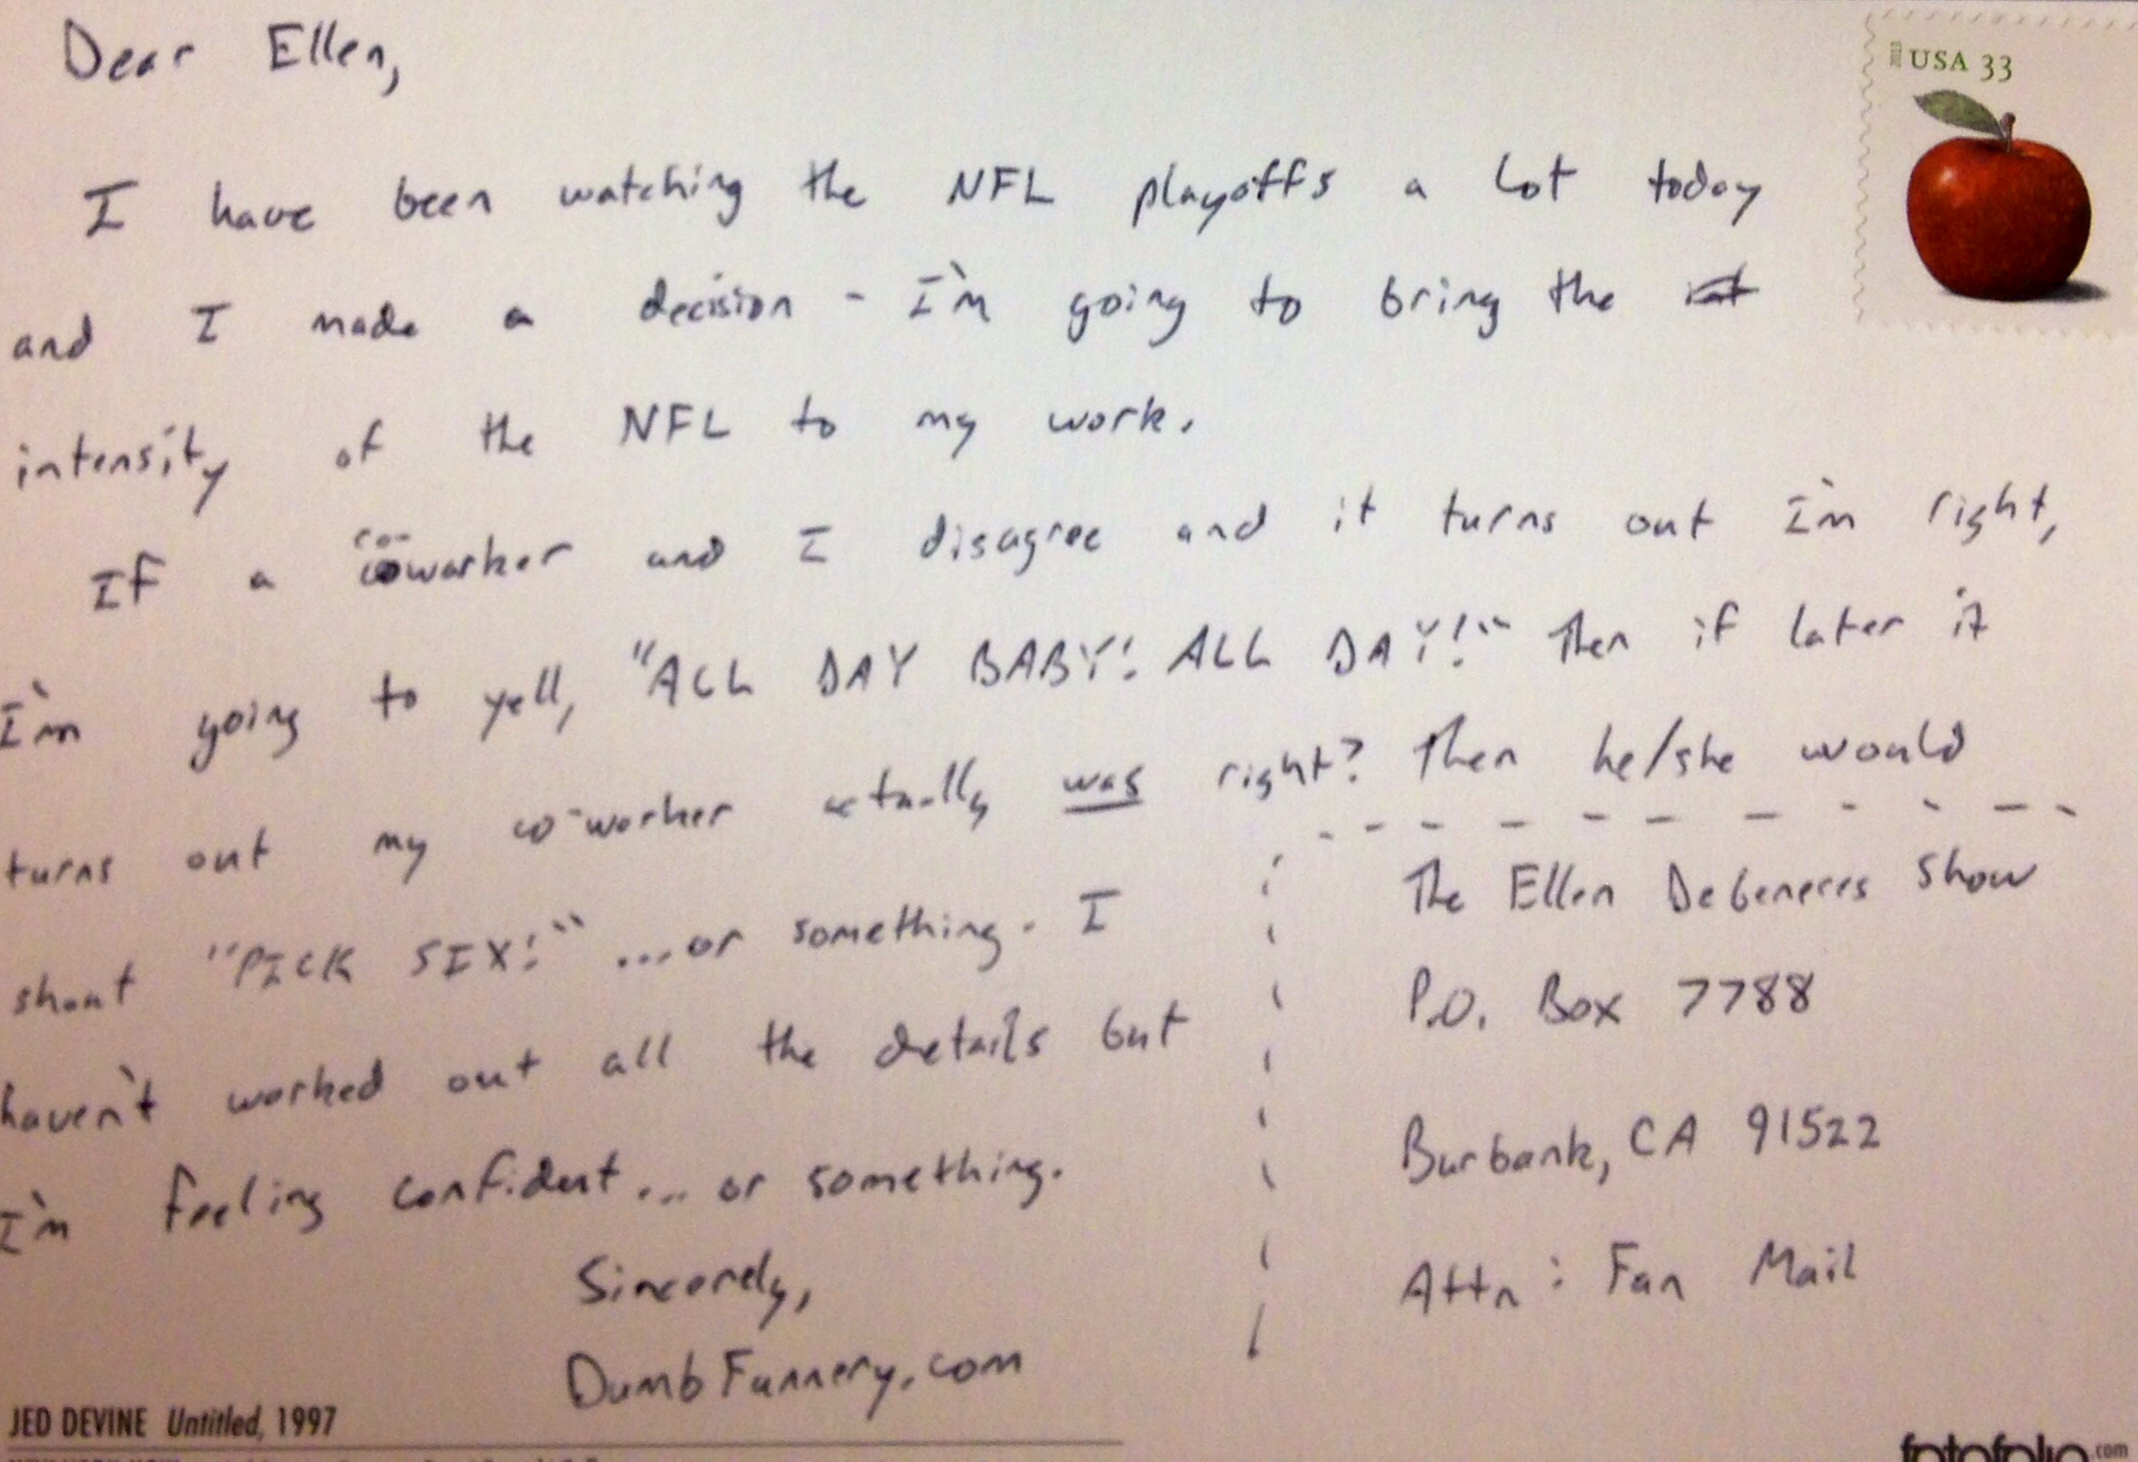 Dear Ellen,
2013 USA 33
I have been watching the NFL playoffs a lot today
and I made a decision - I'm going to bring the
intensity of the NFL to my work.
If a co-worker and I disagree and it turns out I'm right,
I'm going to yell, "ALL DAY BABY! ALL DAY!" Then if later it
turns out my co-worker actually was right? Then he/she would
shout "PICK SIX!" ...or something. I
haven't worked out all the details but
I'm feeling confident... or something.
Sincerely,
DumbFunnery.com
The Ellen Degeneres Show
P.O. Box 7788
Burbank, CA 91522
Attn: Fan Mail
JED DEVINE Untitled, 1997
fotofolio.com